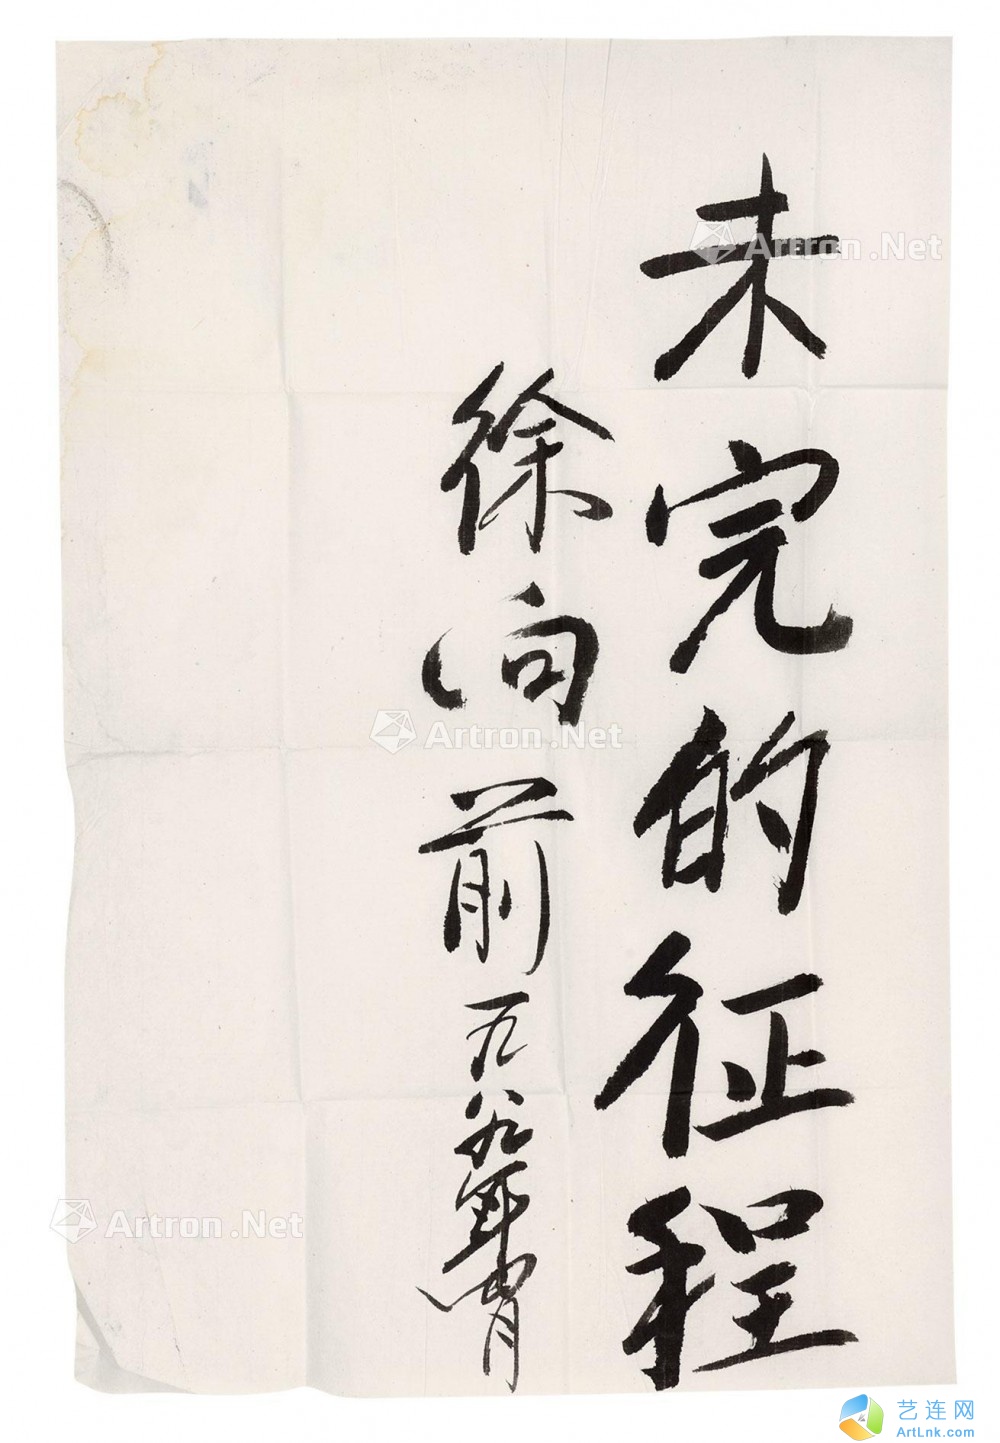 未完的征程
徐向前
一九八九年四月
Artron.Net
Artron.Net
Artron.Net
艺连网
ArtLnk.com